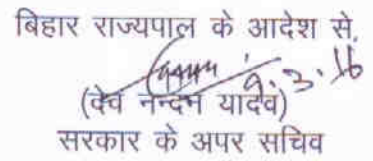 बिहार राज्यपाल के आदेश से,
9.3.16
(देव नन्दन यादव)
सरकार के अपर सचिव